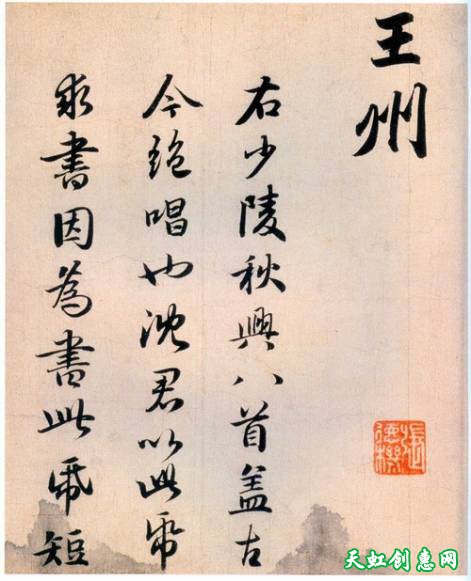 王州
右少陵秋興八首盖古
今絶唱也沈君以此帋
求書因為書此帋短
張德機
天虹创惠网